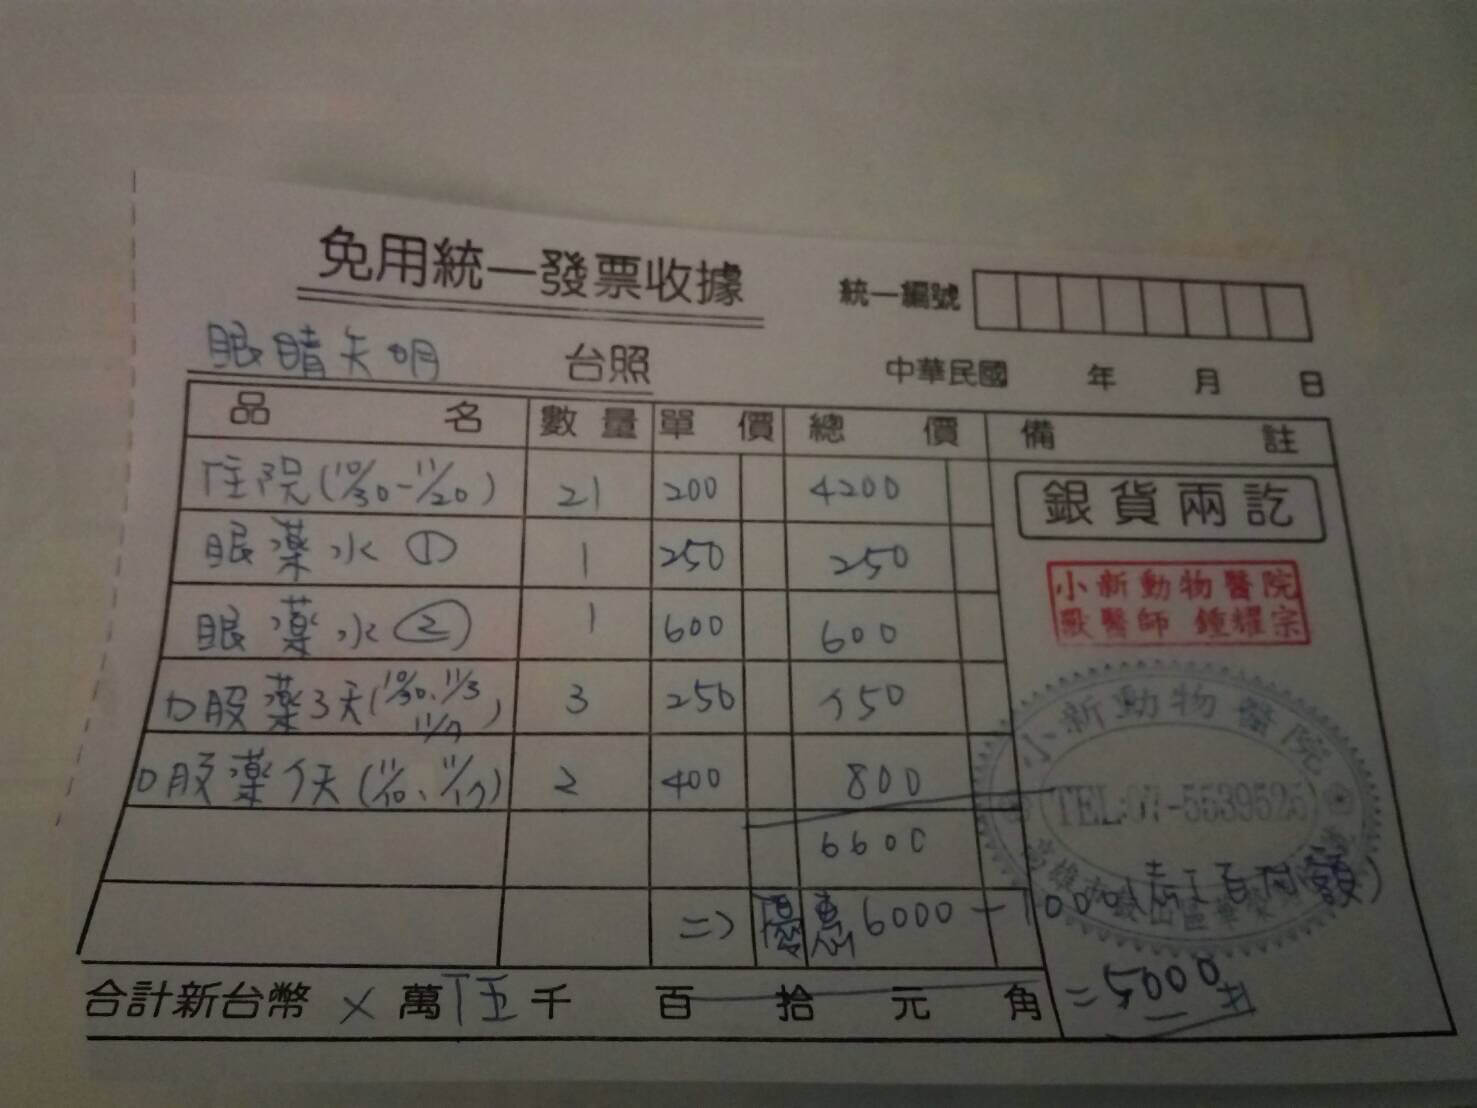 免用統一發票收據
統一編號
眼睛失明 台照 中華民國 年 月 日
品名 數量 單價 總價 備註
住院(10/30-11/20) 21 200 4200
銀貨兩訖
眼藥水① 1 250 250
小新動物醫院
獸醫師 鍾耀宗
眼藥水② 1 600 600
口服藥3天(10/30、11/3 11/7) 3 250 750
小新動物醫院
口服藥7天(11/10、11/17) 2 400 800
TEL:07-5539525
6600
=> 優惠6000-1000
=5000
合計新台幣 × 萬 伍 千 百 拾 元 角